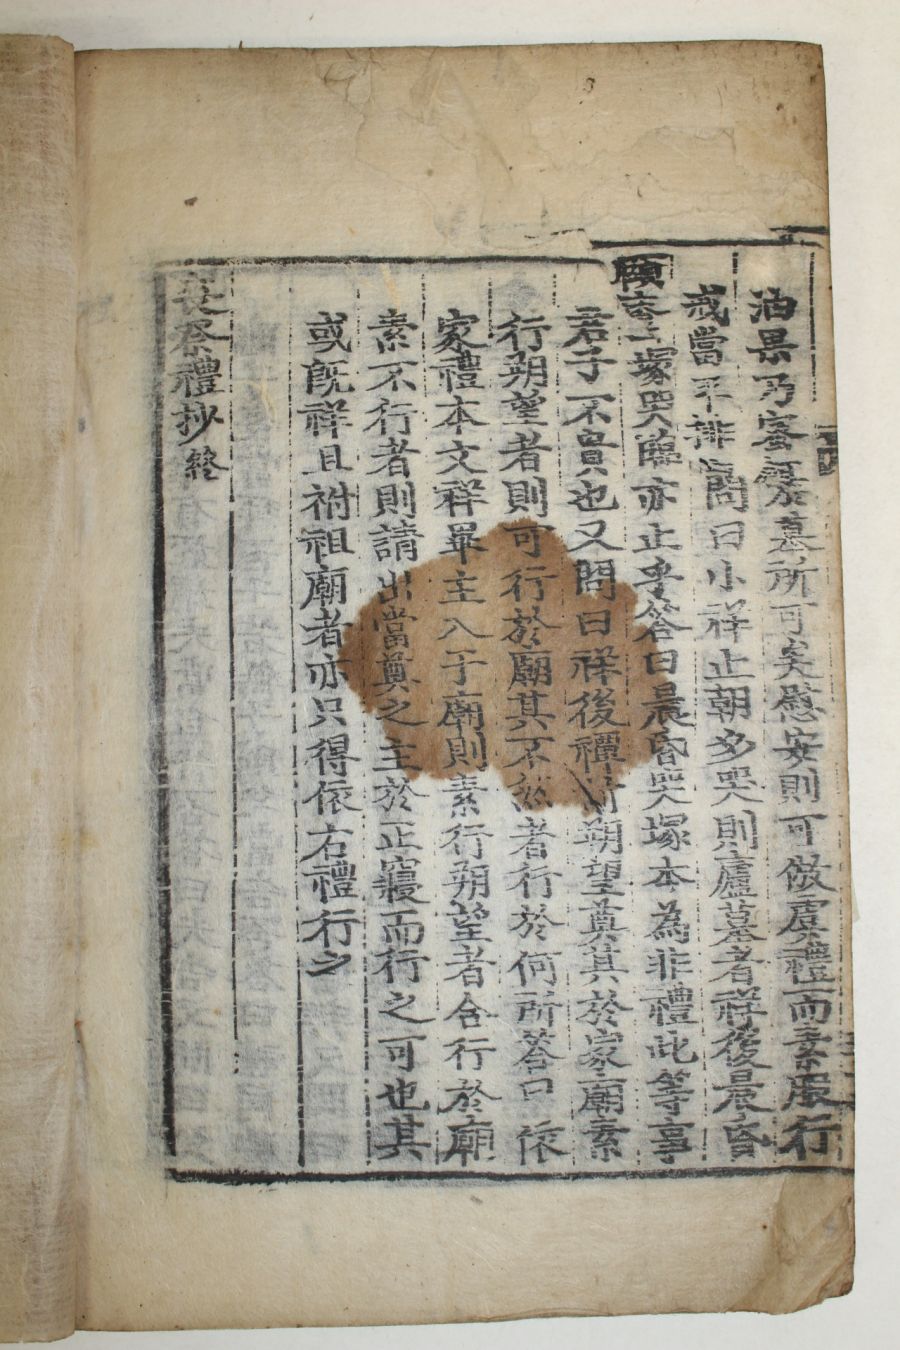 油果乃蜜 墓所可矣慰安則可倣虞禮而素服行
或當不排 問曰小祥止朝夕哭則廬墓者祥後晨昏
上塚哭臨亦止乎答曰晨昏哭塚本為非禮此等事
君子不貴也又問曰祥後禫前朔望奠其於家廟素
行朔望者則可行於廟其不然者行於何所答曰依
家禮本文祥畢主入于廟則素行朔望者合行於廟
素不行者則請出當奠之主於正寢而行之可也其
或既祥且祔祖廟者亦只得依右禮行之
喪祭禮抄終